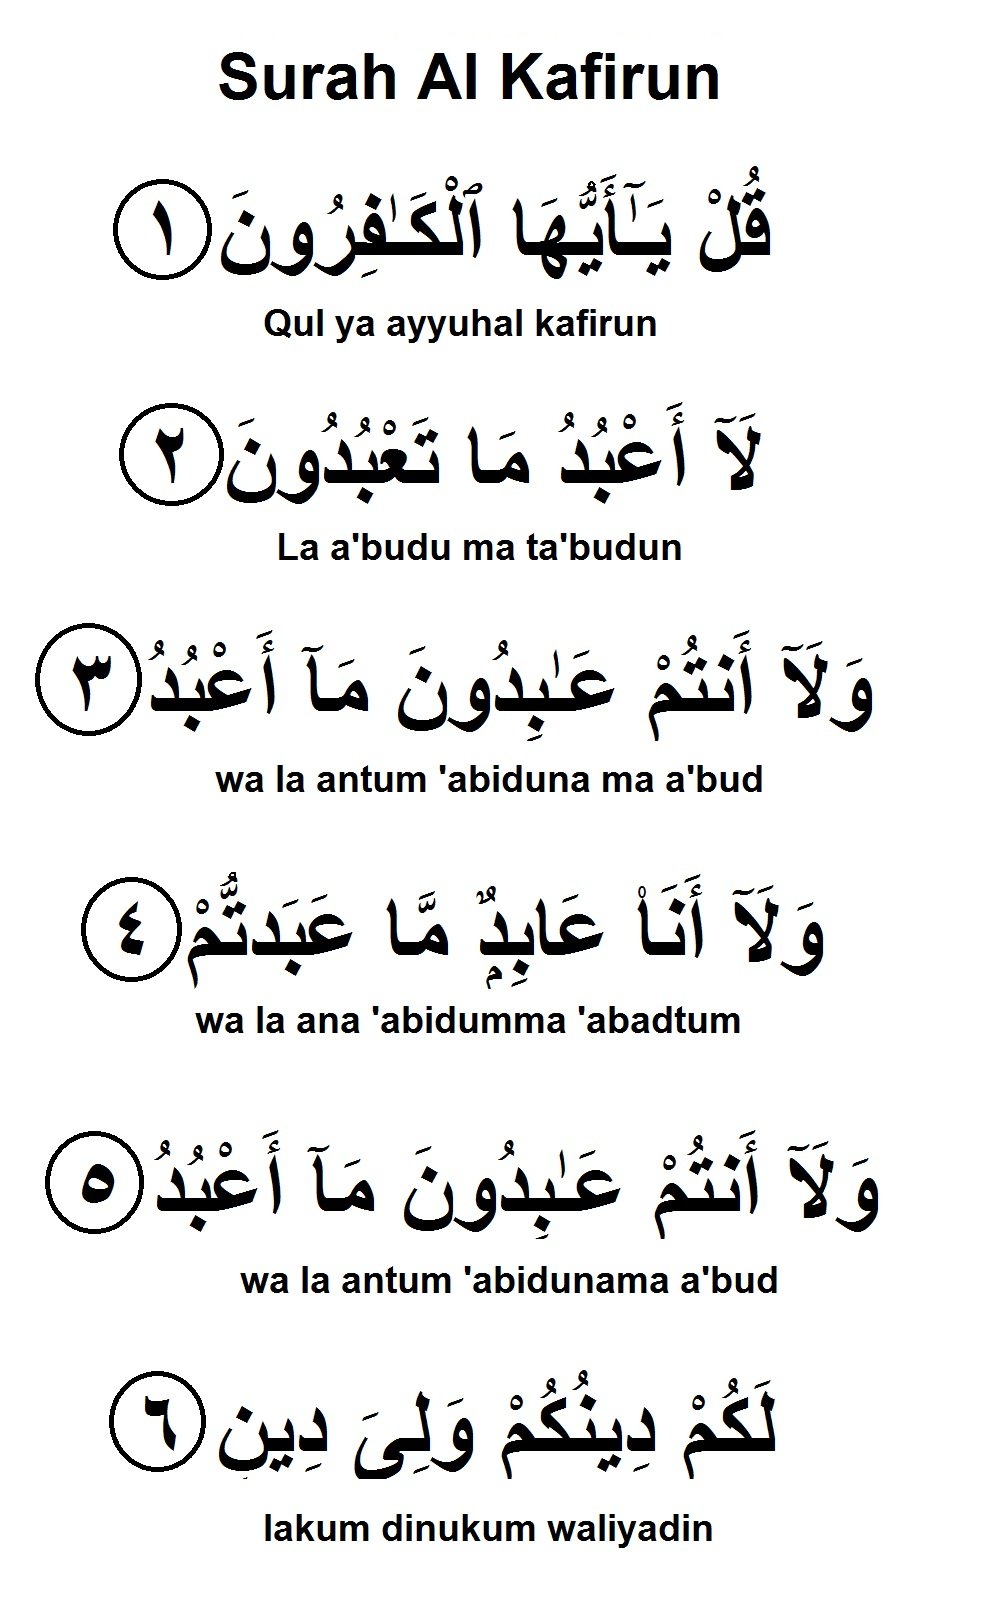 Surah Al Kafirun
قُلْ يَـٰٓأَيُّهَا ٱلْكَـٰفِرُونَ ١
Qul ya ayyuhal kafirun
لَآ أَعْبُدُ مَا تَعْبُدُونَ ٢
La a'budu ma ta'budun
وَلَآ أَنتُمْ عَـٰبِدُونَ مَآ أَعْبُدُ ٣
wa la antum 'abiduna ma a'bud
وَلَآ أَنَا۠ عَابِدٌۭ مَّا عَبَدتُّمْ ٤
wa la ana 'abidumma 'abadtum
وَلَآ أَنتُمْ عَـٰبِدُونَ مَآ أَعْبُدُ ٥
wa la antum 'abidunama a'bud
لَكُمْ دِينُكُمْ وَلِىَ دِينِ ٦
lakum dinukum waliyadin